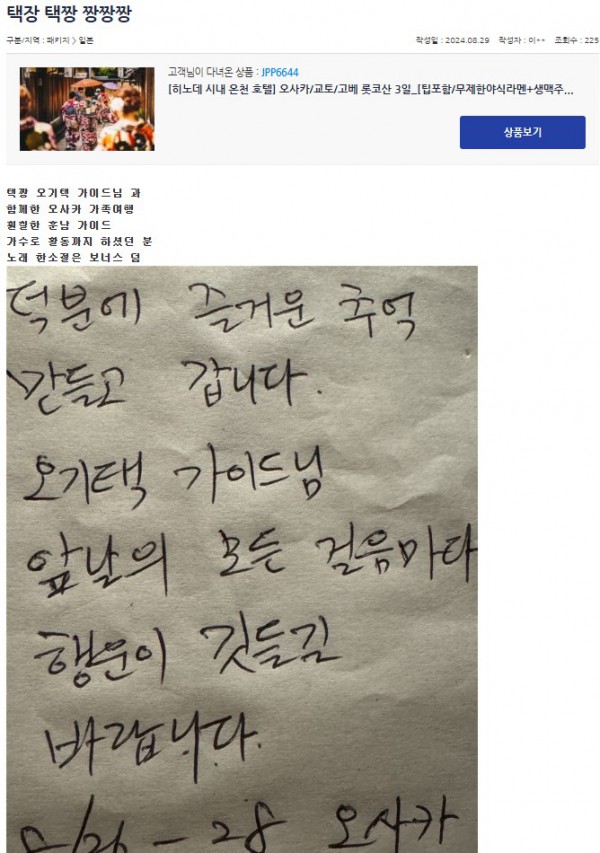 택장 택짱 짱짱짱
구분/지역 : 패키지 > 일본
작성일 : 2024.08.29 작성자 : 이** 조회수 : 225
고객님이 다녀온 상품 : JPP6644
[히노데 시내 온천 호텔] 오사카/교토/고베 롯코산 3일_[팁포함/무제한야식라멘+생맥주...
상품보기
택짱 오기택 가이드님 과
함께한 오사카 가족여행
훤칠한 훈남 가이드
가수로 활동까지 하셨던 분
노래 한소절은 보너스 덤
덕분에 즐거운 추억
만들고 갑니다.
오기택 가이드님
앞날의 모든 걸음마다
행운이 깃들길
바랍니다.
8/26 - 28 오사카